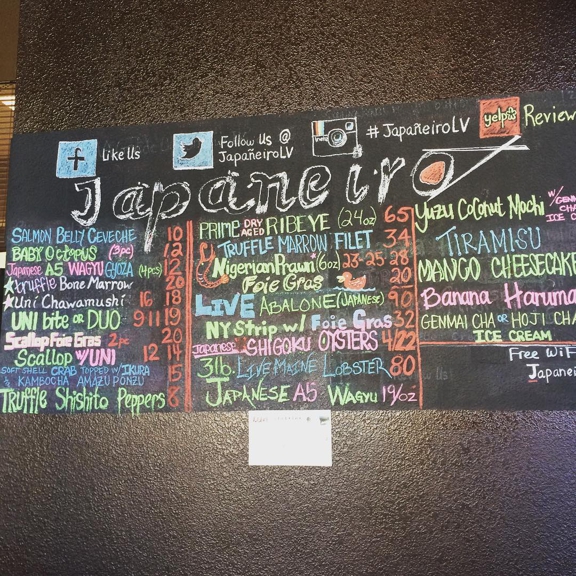 f Like Us
Follow Us @
JapañeiroLV
Instagram
# JapañeiroLV
yelp
Review
Japaneiro
SALMON BELLY CEVECHE 10
BABY OCTOPUS (3pc) 12
Japanese A5 WAGYU GYOZA (4pcs) 12
truffle Bone Marrow 20
Uni Chawamushi 16 18
UNI bite OR DUO 9-11 19
Scallop Foie Gras 2pc 20
Scallop w/UNI 12 14
SOFT SHELL CRAB TOPPED W/IKURA
& KAMBOCHA AMAZU PONZU 15
Truffle Shishito Peppers 8
PRIME DRY AGED RIBEYE (24oz) 65
TRUFFLE MARROW FILET 34
Nigerian Prawn (6oz) 23-25-28
Foie Gras 20
LIVE ABALONE (JAPANESE) 90
NY Strip w/ Foie Gras 32
Japanese SHIGOKU OYSTERS 4/22
3lb. LIVE MAINE LOBSTER 80
JAPANESE A5 WAGYU 19/oz
Yuzu Coconut Mochi
TIRAMISU
MANGO CHEESECAKE
Banana Haruma
GENMAI CHA OR HOJI CHA
ICE CREAM
Free WiF
Japanei